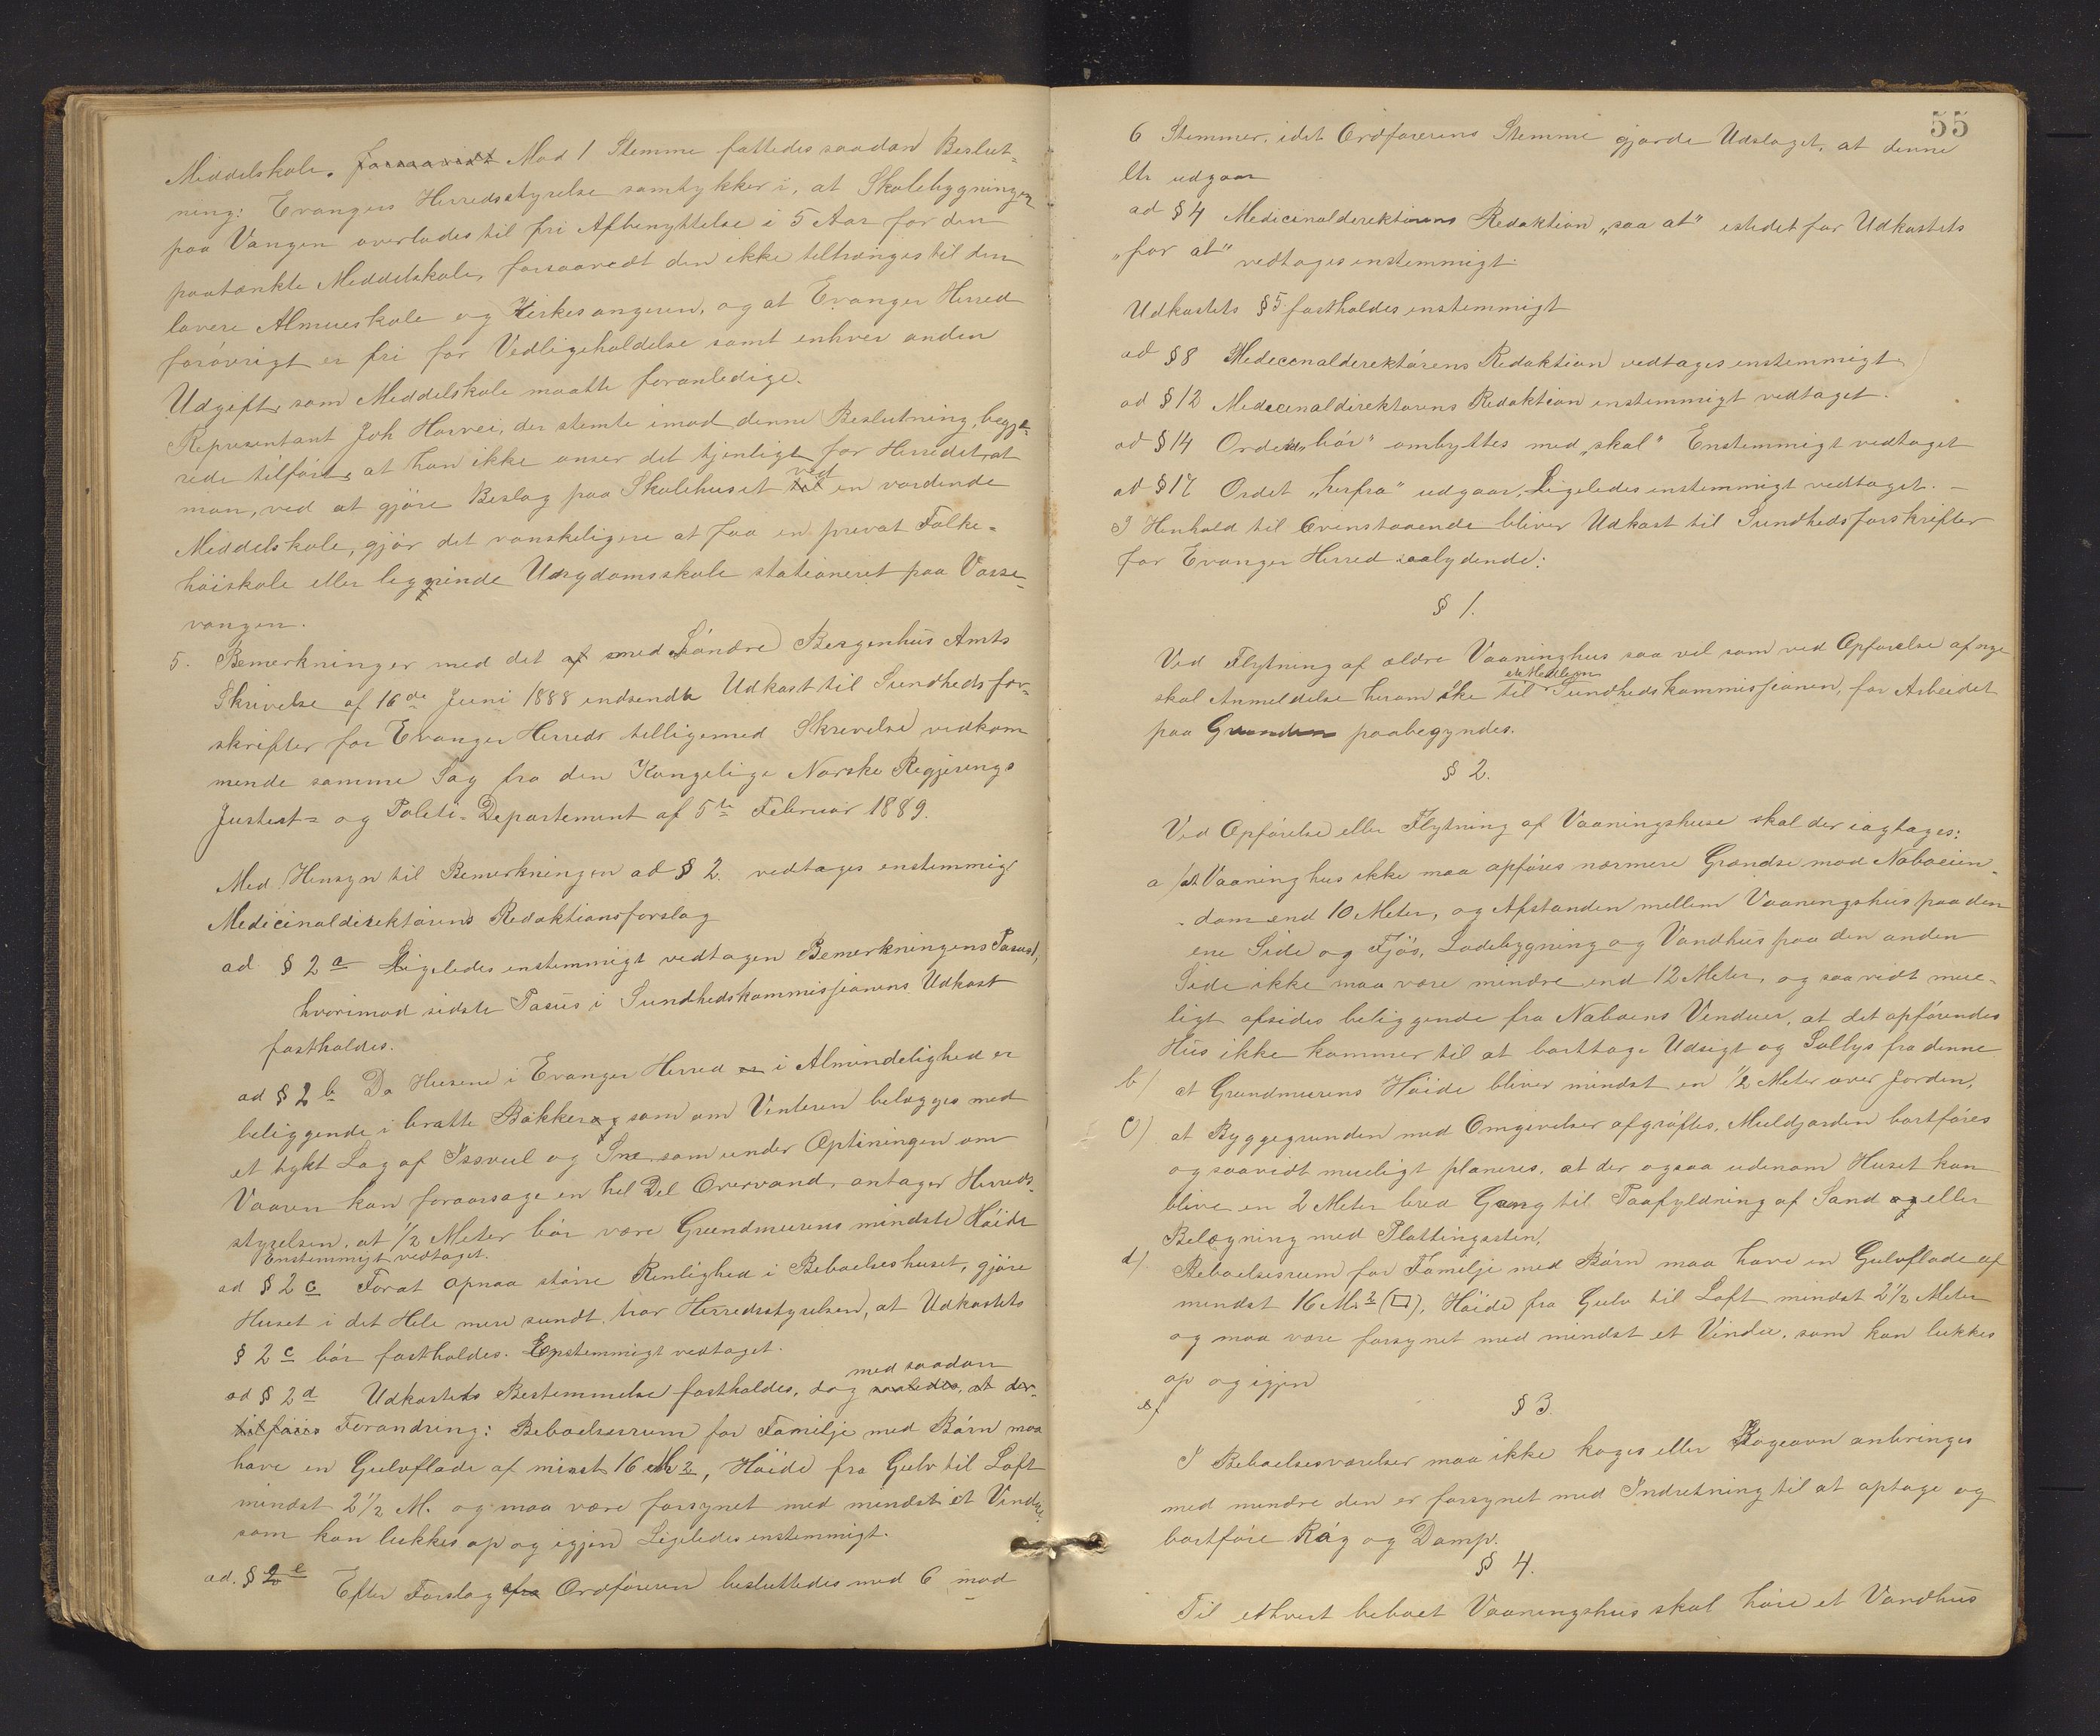 Middelskole. forsaavidt Mod 1 Stemme fattedes saadan Beslut-
ning: Evangers Herredsstyrelse samtykker i, at Skolebygningen
paa Vangen overlades til fri Afbenyttelse i 5 Aar for den
paatænkte Middelskole, forsaavedt den ikke tiltrænges til den
lavere Almueskole og Kirkesangeren, og at Evanger Herred
forøvrigt er fri for Vedligeholdelse samt enhver anden
Udgift, som Middelskole maatte foranledige.
Representant Joh Horvei, der stemte imod denne Beslutning, begjæ-
rede tilført, at han ikke anser det tjenligt for Herredet, at
man, ved at gjøre Beslag paa Skolehuset til ved en vordende
Middelskole, gjør det vanskeligere at faa en privat Folke-
høiskole eller lignende Ungdomsskole stationeret paa Vosse-
vangen.
5. Bemerkninger med det af med Søndre Bergenhus Amts
Skrivelse af 16de Juni 1888 indsendte Udkast til Sundhedsfor-
skrifter for Evanger Herreds tilligemed Skrivelse vedkom
mende samme Sag fra den Kongelige Norske Regjerings
Justits- og Politi-Departement af 5te Februar 1889.
Med Hensyn til Bemerkningen ad § 2. vedtages enstemmig
Medicinaldirektørens Redaktionsforslag
ad § 2 a Ligeledes enstemmigt vedtagen Bemerkningens Pasus 1,
hvorimod sidste Pasus i Sundhedskommissjonens Udkast
fastholdes.
ad § 2 b Da Husene i Evanger Herred er i Almindelighed er
beliggende i bratte Bakker og som om Vinteren belægges med
et tykt Lag af Issvul og Sne som under Optiningen om
Vaaren kan foraarsage en hel Del Overvand, antager Herreds-
styrelsen, at 1/2 Meter bør være Grundmurens mindste Høide
Enstemmigt vedtaget.
ad § 2 c Forat opnaa større Renlighed i Beboelseshuset, gjøre
Huset i det Hele mere sundt, tror Herredsstyrelsen, at Udkastets
§ 2 c bør fastholdes. Enstemmigt vedtaget.
med saadan
ad § 2 d Udkastets Bestemmelse fastholdes, dog saaledes, at der
tilføies Forandring: Beboelsesrum for Familje med Børn maa
have en Gulvflade af minst 16 M 2, Høide fra Gulv til Loft
mindst 2 1/2 M. og maa være forsynet med mindst et Vindue
som kan lukkes op og igjen Ligeledes enstemmigt.
ad. § 2 e Efter Forslag fra Ordføreren besluttedes med 6 mod
55
6 Stemmer, idet Ordførerens Stemme gjorde Udslaget, at denne
ltr udgaar
ad § 4 Medicinaldirektørens Redaktion „saa at" istedet for Udkastets
„for at" vedtages enstemmigt.
Udkastets § 5 fastholdes enstemmigt
ad § 8 Medecinaldirektørens Redaktion vedtages enstemmigt.
ad § 12 Medecinaldirektørens Redaktion enstemmigt vedtaget.
ad § 14 Ordet „bør" ombyttes med „skal" Enstemmigt vedtaget
ad § 17 Ordet „herfra" udgaar, Ligeledes enstemmigt vedtaget. –
I Henhold til Ovenstaaende bliver Udkast til Sundhedsforskrifter
for Evanger Herred saalydende:
§ 1.
Ved Flytning af ældre Vaaninghus saa vel som ved Opførelse af nye
skal Anmeldelse herom ske til et Medlem Sundhedskommissjonen, før Arbeidet
paa Grunden paabegyndes.
§ 2.
Ved Opførelse eller Flytning af Vaaningshuse skal der iagtages:
a/ at Vaaninghus ikke maa opføres nærmere Grændse mod Naboeien-
dom end 10 Meter, og Afstanden mellem Vaaningshus paa den
ene Side og Fjøs, Ladebygning og Vandhus paa den anden
Side ikke maa være mindre end 12 Meter, og saavidt mue-
ligt afsides beliggende fra Naboens Vinduer, at det opførendes
Hus ikke kommer til at borttage Udsigt og Sollys fra denne
b/ at Grundmurens Høide bliver mindst en 1/2 Meter over Jorden,
c) at Byggegrunden med Omgivelser afgrøftes, Muldjorden bortføres
og saavidt mueligt planeres, at der ogsaa udenom Huset kan
blive en 2 Meter bred Gang til Paafyldning af Sand og eller
Belægning med Plattingssten,
d) Beboelsesrum for Familje med Børn maa have en Gulvflade af
mindst 16 M. 2 (□), Høide fra Gulv til Loft mindst 2 1/2 Meter
og maa være forsynet med mindst et Vindu, som kan lukkes
op og igjen
e/
§ 3.
I Beboelsesværelser maa ikke koges eller Kogeovn anbringes
med mindre den er forsynet med Indretning til at optage og
bortføre Røg og Damp.
§ 4.
Til ethvert beboet Vaaningshus skal høre et Vandhus